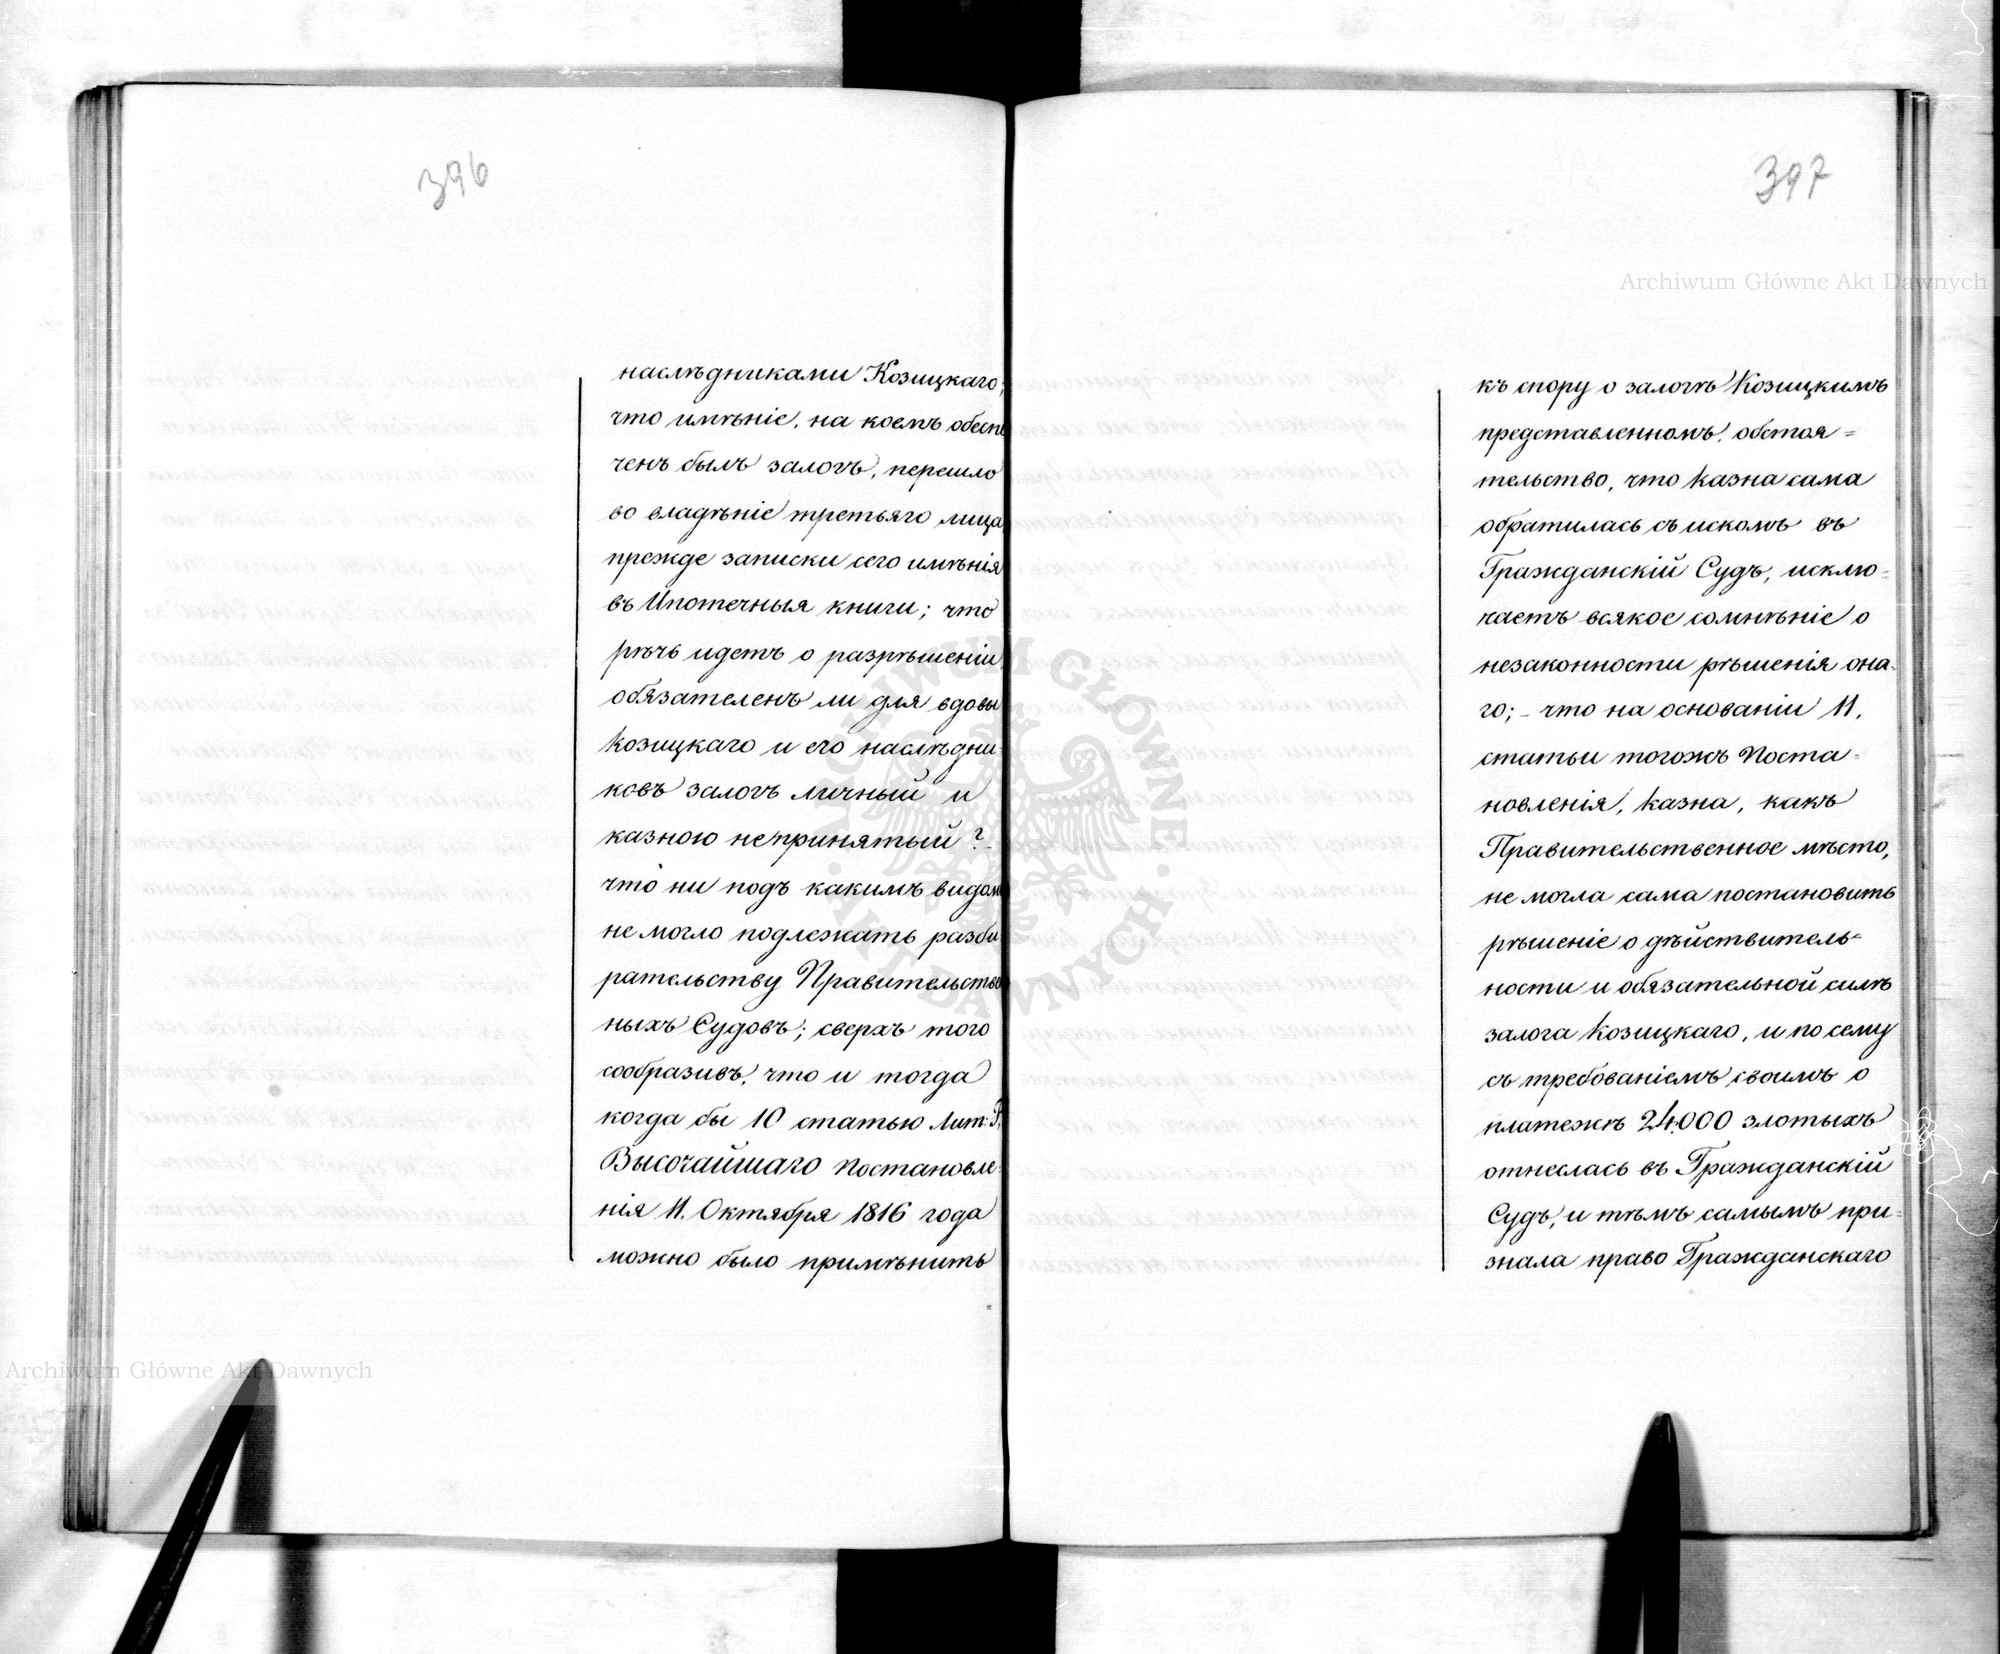 396
наслѣдниками Козицкаго;
что имѣніе, на коемъ обеспе
ченъ былъ залогъ, перешло
во владѣніе третьяго лица
прежде записки сего имѣнія
въ Ипотечныя книги; что
рѣчь идетъ о разрѣшеніи
обязателенъ ли для вдовы
Козицкаго и его наслѣдни
ковъ залогъ личный и
казною непринятый? _
что ни подъ какимъ видом
не могло подлежать разби
рательству Правительствен
ныхъ Судовъ; сверхъ того
сообразивъ, что и тогда
когда бы 10 статью Лит: F.
Высочайшаго Постановле
нія 11. Октября 1816 года
можно было примѣнить
397
къ спору о залогѣ Козицкимъ
представленномъ, обстоя=
тельство, что казна сама
обратилась съ искомъ въ
Гражданскій Судъ, исклю=
чаетъ всякое сомнѣніе о
незаконности рѣшенія она-
го; - что на основаніи 11,
статьи тогожъ Поста=
новленія, казна, какъ
Правительственное мѣсто,
не могла сама постановить
рѣшеніе о дѣйствитель=
ности и обязательной силѣ
залога Козицкаго, и по сему
съ требованіемъ своимъ о
платежѣ 24,000 злотыхъ
отнеслась въ Гражданскій
Судъ, и тѣмъ самымъ при=
знала право Гражданскаго
Archiwum Główne Akt Dawnych
Archiwum Główne Akt Dawnych
ARCHIWUM GŁÓWNE · AKT DAWNYCH ·